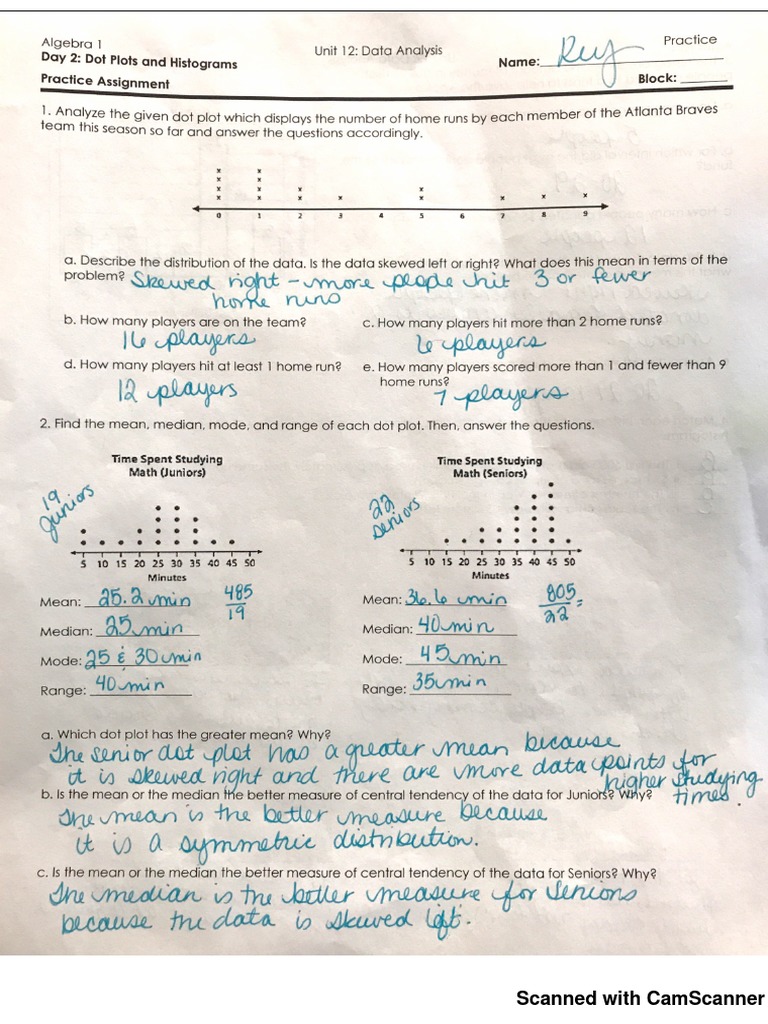 Algebra 1
Unit 12: Data Analysis
Practice
Day 2: Dot Plots and Histograms
Name: Key
Practice Assignment
Block:
1. Analyze the given dot plot which displays the number of home runs by each member of the Atlanta Braves
team this season so far and answer the questions accordingly.
0 1 2 3 4 5 6 7 8 9
a. Describe the distribution of the data. Is the data skewed left or right? What does this mean in terms of the
problem? Skewed right - more people hit 3 or fewer
home runs
b. How many players are on the team?
16 players
c. How many players hit more than 2 home runs?
6 players
d. How many players hit at least 1 home run?
12 players
e. How many players scored more than 1 and fewer than 9
home runs?
7 players
2. Find the mean, median, mode, and range of each dot plot. Then, answer the questions.
Time Spent Studying
Math (Juniors)
19
Juniors
5 10 15 20 25 30 35 40 45 50
Minutes
Mean: 25.2 min
485
19
Median: 25 min
Mode: 25 & 30 min
Range: 40 min
Time Spent Studying
Math (Seniors)
22
seniors
5 10 15 20 25 30 35 40 45 50
Minutes
Mean: 36.6 min
805 =
22
Median: 40 min
Mode: 45 min
Range: 35 min
a. Which dot plot has the greater mean? Why?
The senior dot plot has a greater mean because
it is skewed right and there are more data points for
higher studying
times.
b. Is the mean or the median the better measure of central tendency of the data for Juniors? Why?
The mean is the better measure because
it is a symmetric distribution.
c. Is the mean or the median the better measure of central tendency of the data for Seniors? Why?
The median is the better measure for seniors
because the data is skewed left.
Scanned with CamScanner